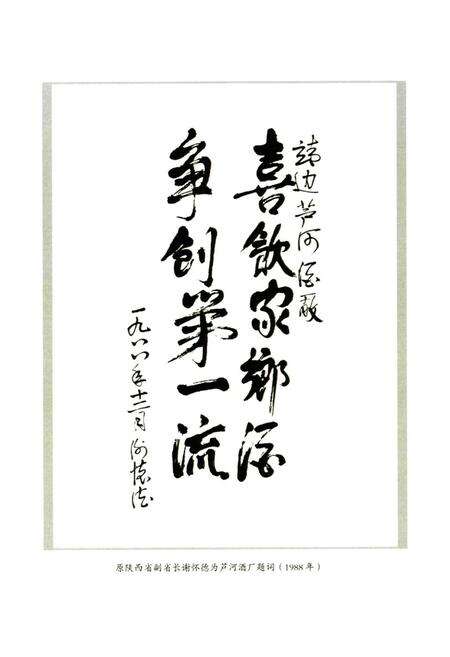 靖边芦河酒厰
喜飲家鄉酒
争创第一流
一九八八年十二月 谢怀德
原陕西省副省长谢怀德为芦河酒厂题词（1988年）